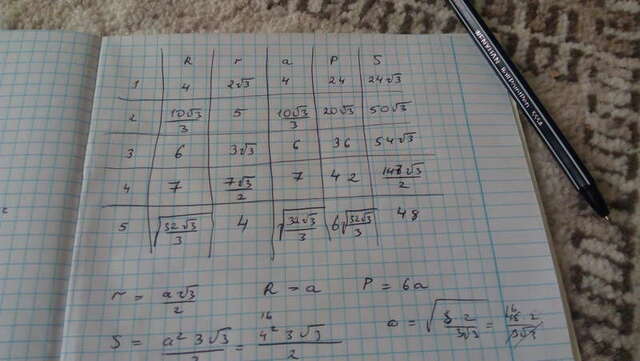 R r a P S
1 4 2√3 4 24 24√3
2 10√3/3 5 10√3/3 20√3 50√3
3 6 3√3 6 36 54√3
4 7 7√3/2 7 42 147√3/2
5 √(32√3/3) 4 √(32√3/3) 6√(32√3/3) 48
r = a√3/2 R = a P = 6a
S = a² 3√3/2 = 4² 3√3/2 a = √(S 2/3√3) =
16